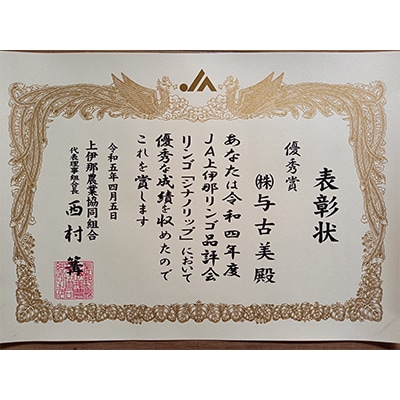 表彰状
優秀賞
㈱与古美殿
あなたは令和四年度
JA上伊那リンゴ品評会
リンゴ「シナノリップ」において
優秀な成績を収めたので
これを賞します
令和五年四月五日
上伊那農業協同組合
代表理事組合長 西村篝